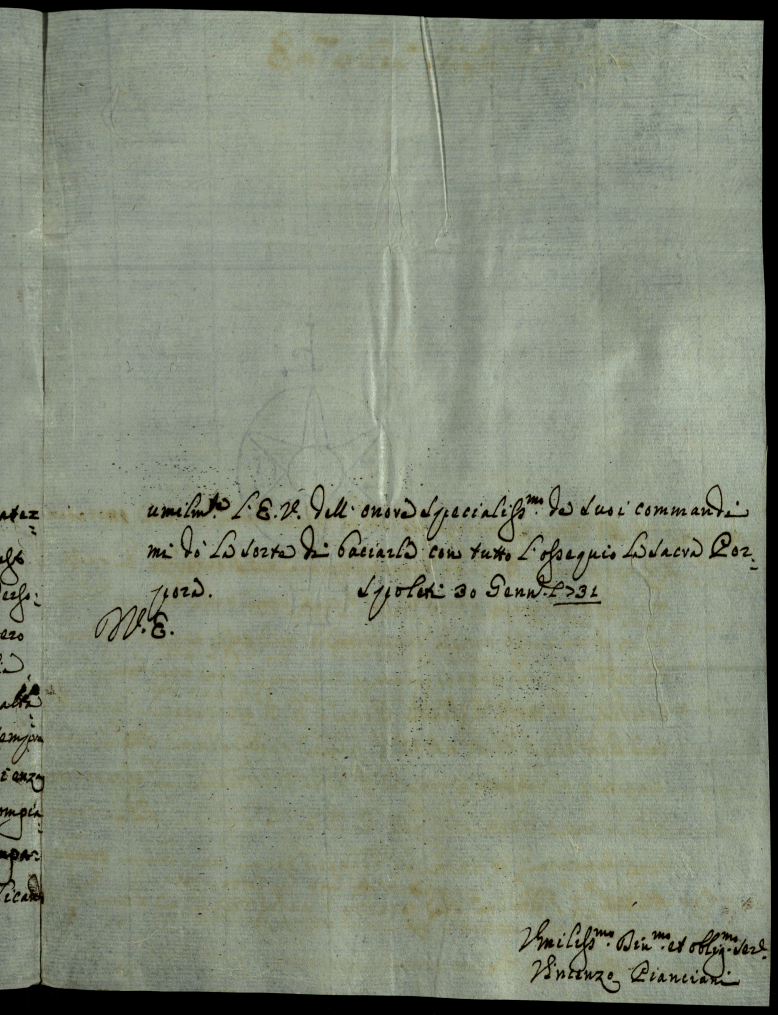 umilm.te L'E.V. dell'onore specialiss.mo de suoi commandi
mi dò la sorte di baciarle con tutto l'ossequio la Sacra Por-
pora. Spoleti 30 Genn. 1731
V. E.
Umiliss.mo Div.mo et obblig.mo Ser.
Vincenzo Pianciani